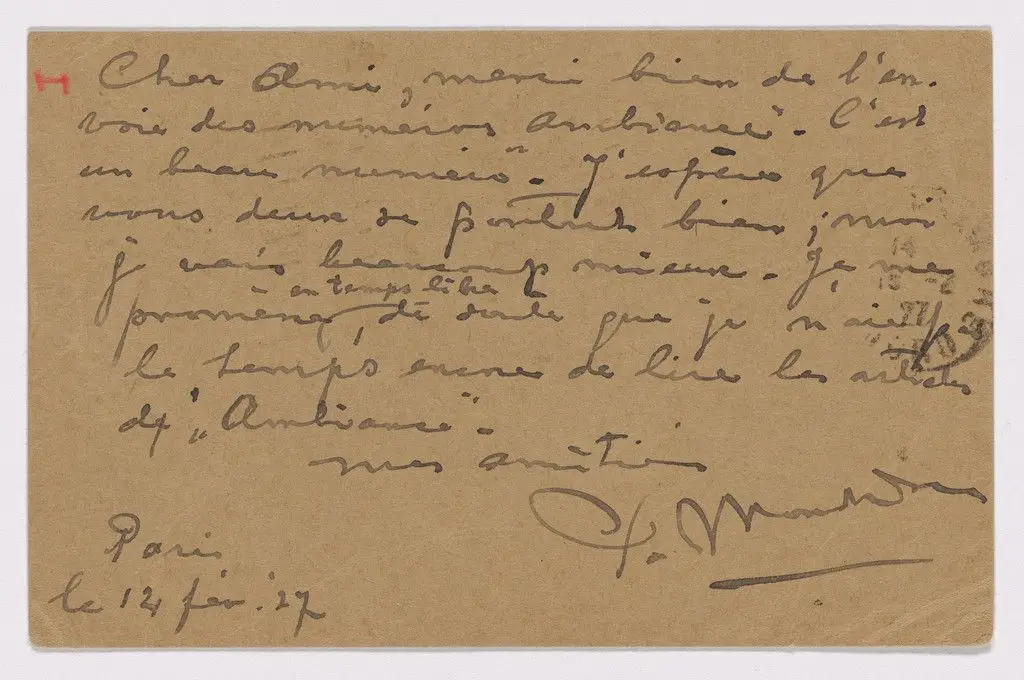 Cher Ami, merci bien de l'en-
voie des numéros Ambiance". C'est
un beau numéro". J'espère que
vous deux se portent bien; moi
je vais beaucoup mieux. Je me
en temps libre
promène, de sorte que je n'aie
le temps encore de lire les articles
de „Ambiance".
mes amitiés
P. Mondrian
Paris
le 14 fév. 27
H
14
15 -2
27